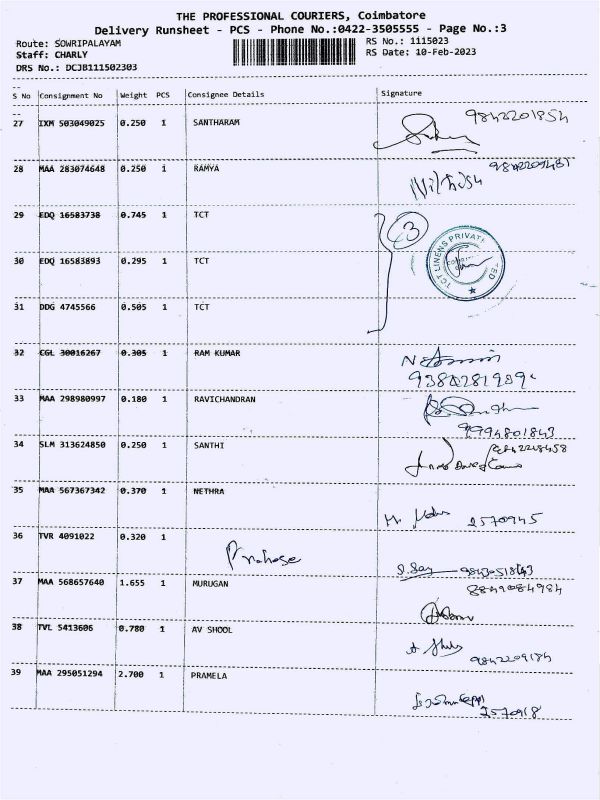 THE PROFESSIONAL COURIERS, Coimbatore
Delivery Runsheet - PCS - Phone No.:0422-3505555 - Page No.:3
Route: SOWRIPALAYAM RS No.: 1115023
Staff: CHARLY RS Date: 10-Feb-2023
DRS No.: DCJB111502303
S No Consignment No Weight PCS Consignee Details Signature
27 IXM 503049025 0.250 1 SANTHARAM 9843201854
28 MAA 283074648 0.250 1 RAMYA
29 EDQ 16583738 0.745 1 TCT 3
TCT LINENS PRIVATE
30 EDQ 16583893 0.295 1 TCT
31 DDG 4745566 0.505 1 TCT
32 CGL 30016267 0.305 1 RAM KUMAR
33 MAA 298980997 0.180 1 RAVICHANDRAN
9994801843
34 SLM 313624850 0.250 1 SANTHI
35 MAA 567367342 0.370 1 NETHRA
2570945
36 TVR 4091022 0.320 1
37 MAA 568657640 1.655 1 MURUGAN
38 TVL 5413606 0.780 1 AV SHOOL
9842209184
39 MAA 295051294 2.700 1 PRAMELA
2570918